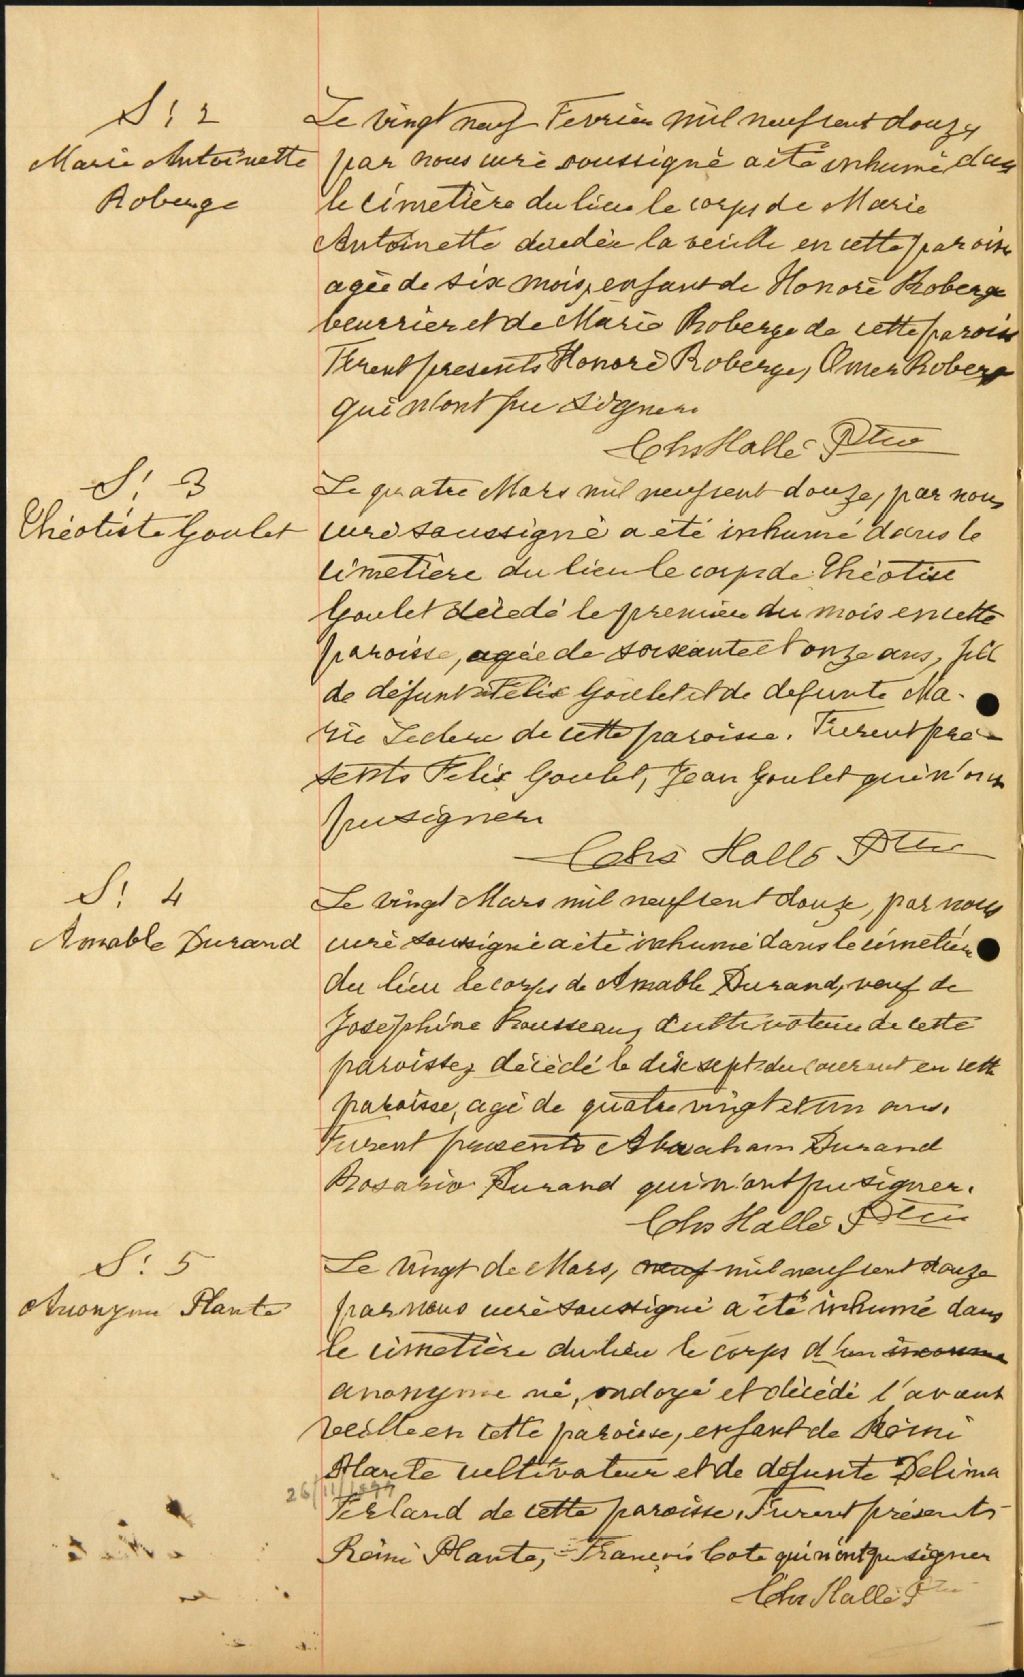 S: 2
Marie Antoinette
Roberge
Le vingt neuf Fevrier mil neuf cent douze,
par nous curé soussigné a été inhumé dans
le cimetière du lieu le corps de Marie
Antoinette decedée la veille en cette paroisse
agée de six mois, enfant de Honoré Roberge
beurrier et de Marie Roberge de cette paroisse
Furent presents Honoré Roberge, Omer Roberge
qui n'ont pu signer.
Chs Hallé Ptre
S! 3
Théotiste Goulet
Le quatre Mars mil neuf cent douze, par nous
curé soussigné a été inhumé dans le
cimetière du lieu le corps de Théotise
Goulet décedé le premier du mois en cette
paroisse, agée de soixante et onze ans, fille
de défunt Félix Goulet et de defunte Ma-
rie Leclerc de cette paroisse. Furent pré-
sents Felix Goulet, Jean Goulet qui n'ont
pu signer
Chs Hallé Ptre
S! 4
Amable Durand
Le vingt Mars mil neuf cent douze, par nous
curé soussigné a été inhumé dans le cimetière
du lieu le corps de Amable Durand, veuf de
Joséphine Rousseau, cultivateur de cette
paroisse, décédé le dix sept du courant en cette
paroisse, agé de quatre vingt et un ans.
Furent presents Abraham Durand
Rosario Durand qui n'ont pu signer.
Chs Hallé Ptre
S! 5
Anonyme Plante
Le vingt de Mars, neuf mil neuf cent douze
par nous curé soussigné a été inhumé dans
le cimetière du lieu le corps d'un inconnu
anonyme né, ondoyé et décédé l'avant
veille en cette paroisse, enfant de Rémi
Plante cultivateur et de défunte Delima
26/11/1899
Ferland de cette paroisse. Furent présents
Rémi Plante, François Cote qui n'ont pu signer
Chs Hallé Ptre